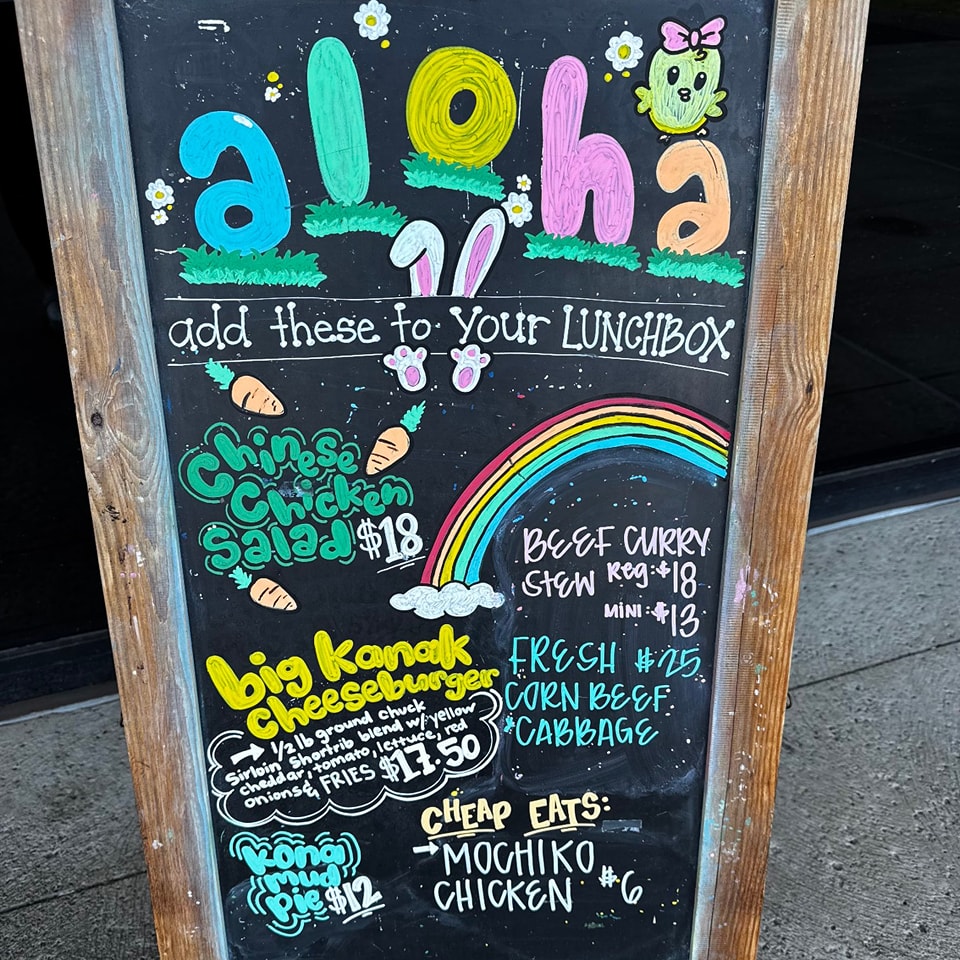 aloha
add these to your LUNCHBOX
Chinese
Chicken
Salad $18
BEEF CURRY
STEW Reg: $18
MINI: $13
big Kanak
cheeseburger
→ 1/2 lb ground chuck
Sirloin Shortrib blend w/ yellow
cheddar, tomato, lettuce, red
onions & FRIES $17.50
FRESH $25
CORN BEEF
*CABBAGE
kona
mud
pie $12
CHEAP EATS:
→ MOCHIKO
CHICKEN $6